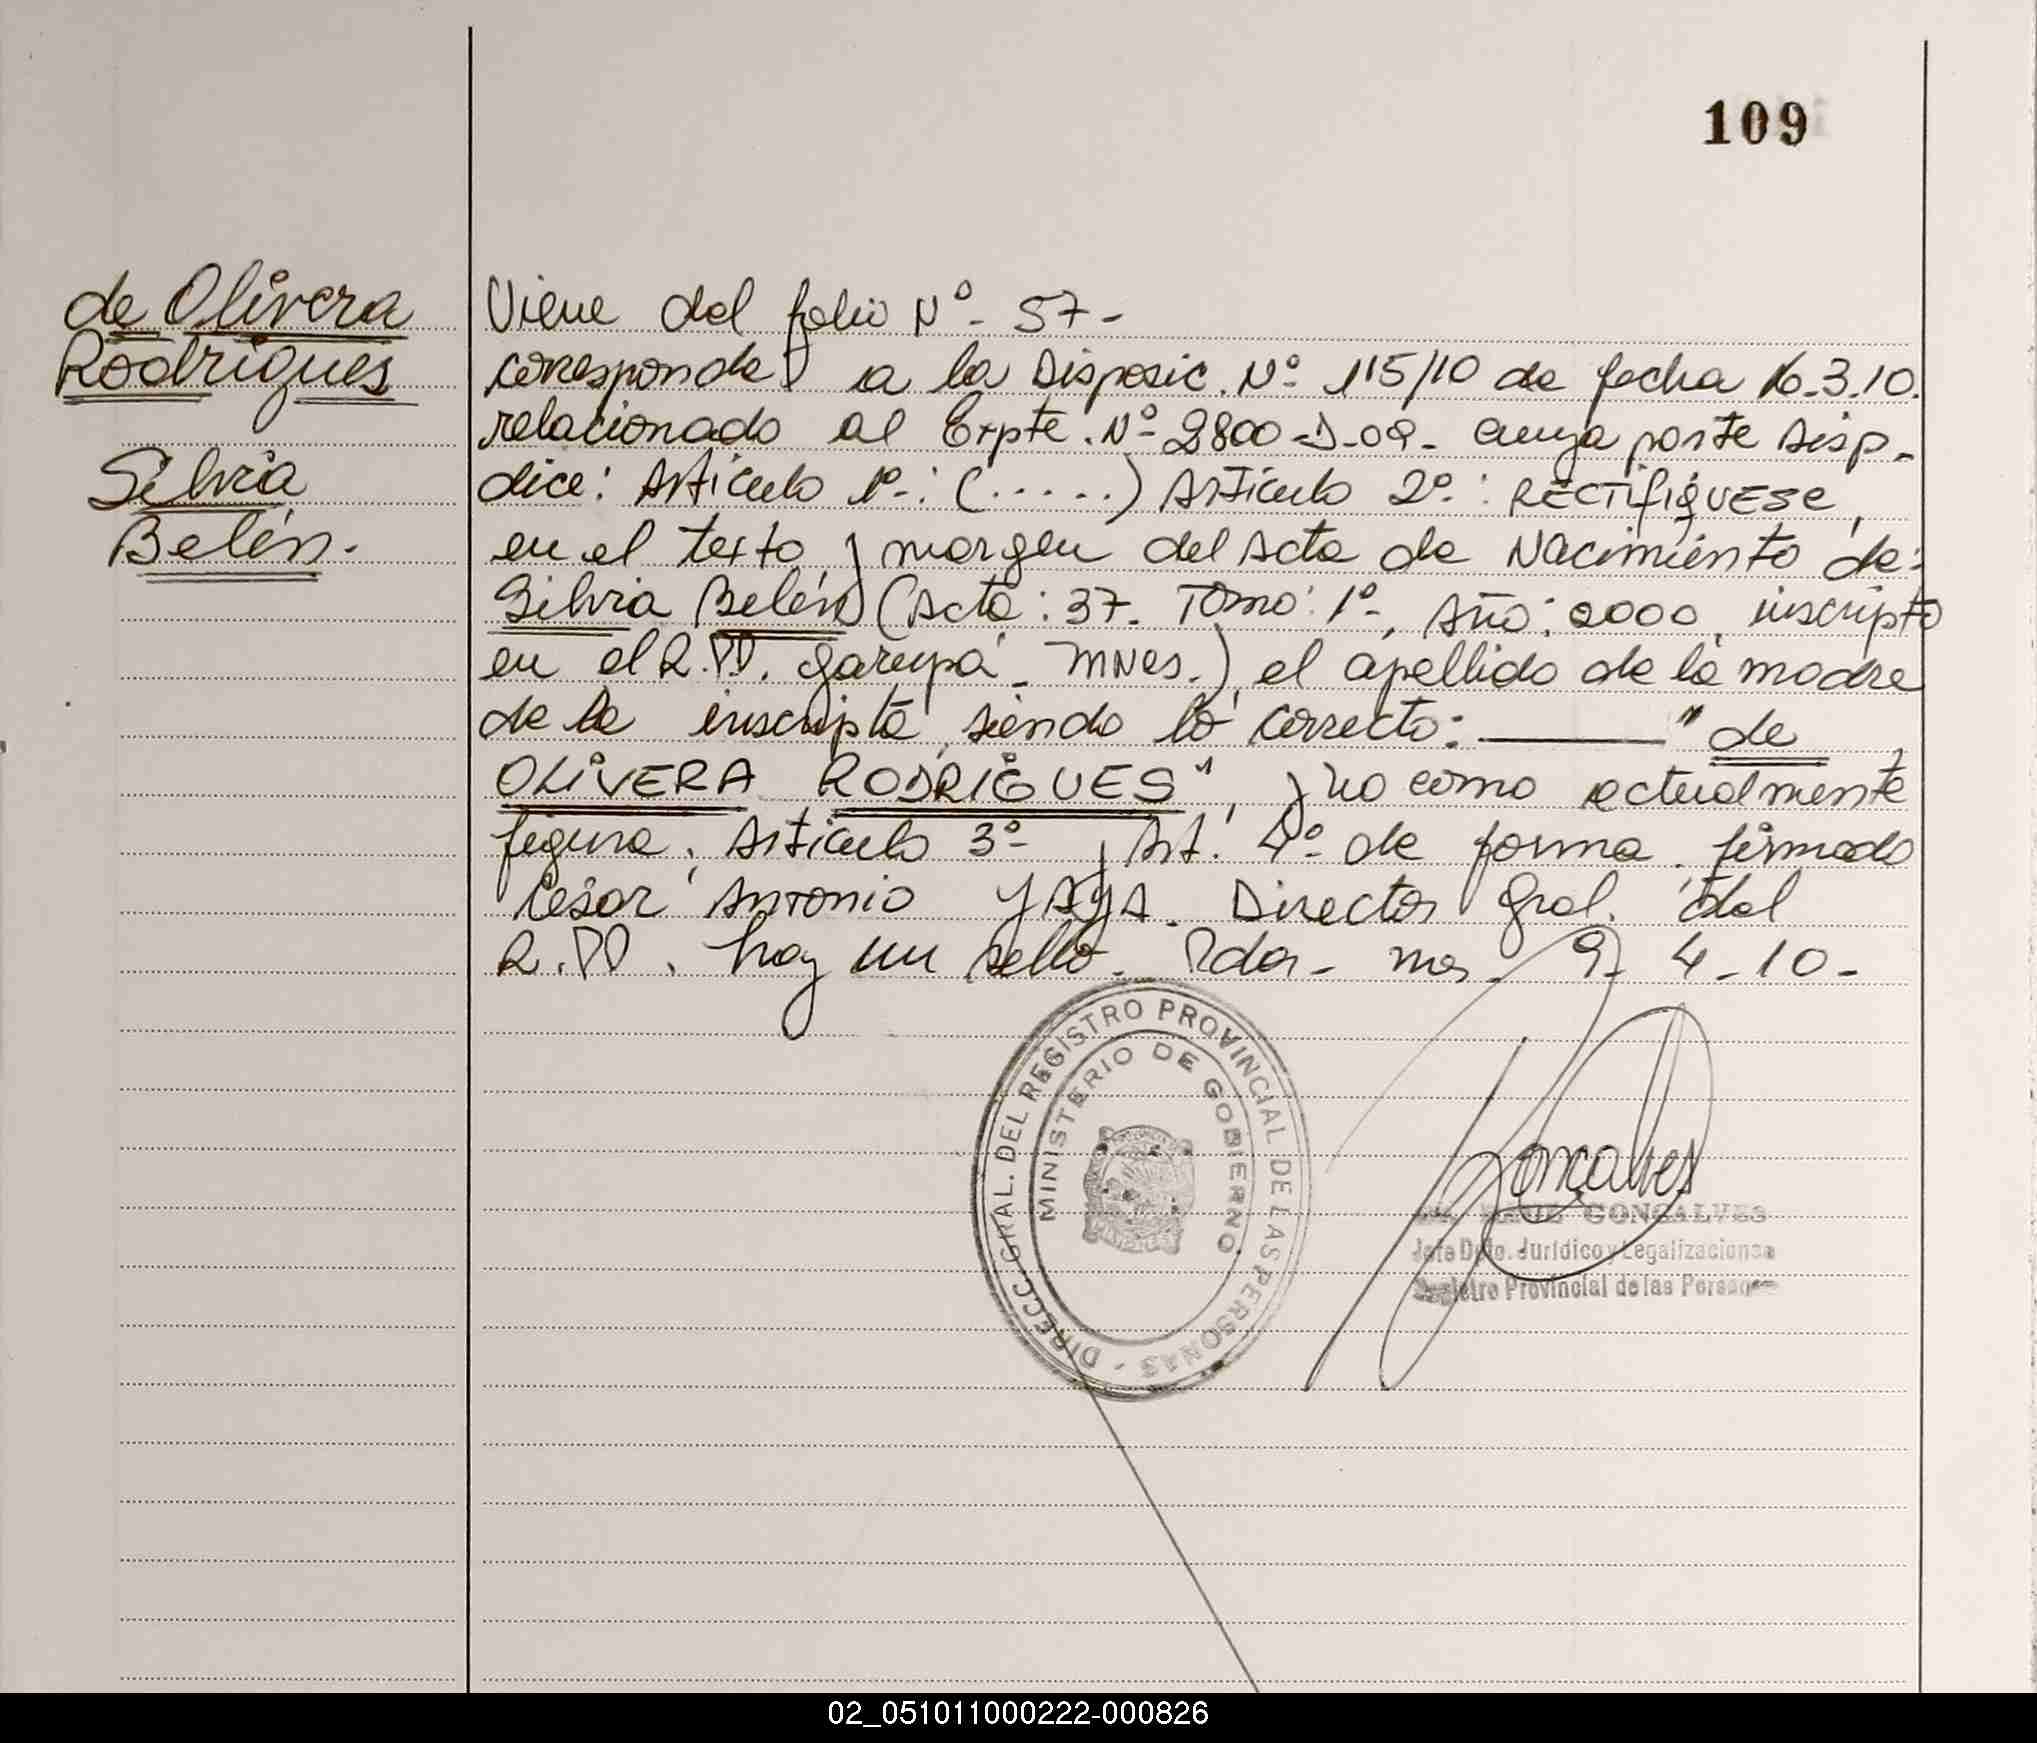 109
de Olivera
Rodrigues
Silvia
Belén.
Viene del folio Nº- 57-
corresponde a la Disposic. Nº 115/10 de fecha 16.3.10.
relacionado al Expte. Nº 2800-D-09- cuya parte disp-
dice: Artículo 1º-: (.....) Artículo 2º: RECTIFIQUESE,
en el texto y margen del Acta de Nacimiento de:
Silvia Belén (Acta: 37- Tomo: 1º-, Año: 2000, inscripta
en el R.PP. Garupá- MNes.), el apellido de la madre
de la inscripta, siendo lo correcto: ——— "de
OLIVERA RODRIGUES", y no como actualmente
figura. Artículo 3º- y Art. 4º- de forma. firmado
César Antonio YAYA. Director Gral. del
R.PP. hay un sello. Pdas- mes- 9- 4-10-
DIRECC. GRAL. DEL REGISTRO PROVINCIAL DE LAS PERSONAS -
MINISTERIO DE GOBIERNO
Goncalves
GONCALVES
Jefe Dpto. Jurídico y Legalizaciones
Registro Provincial de las Personas
02_051011000222-000826